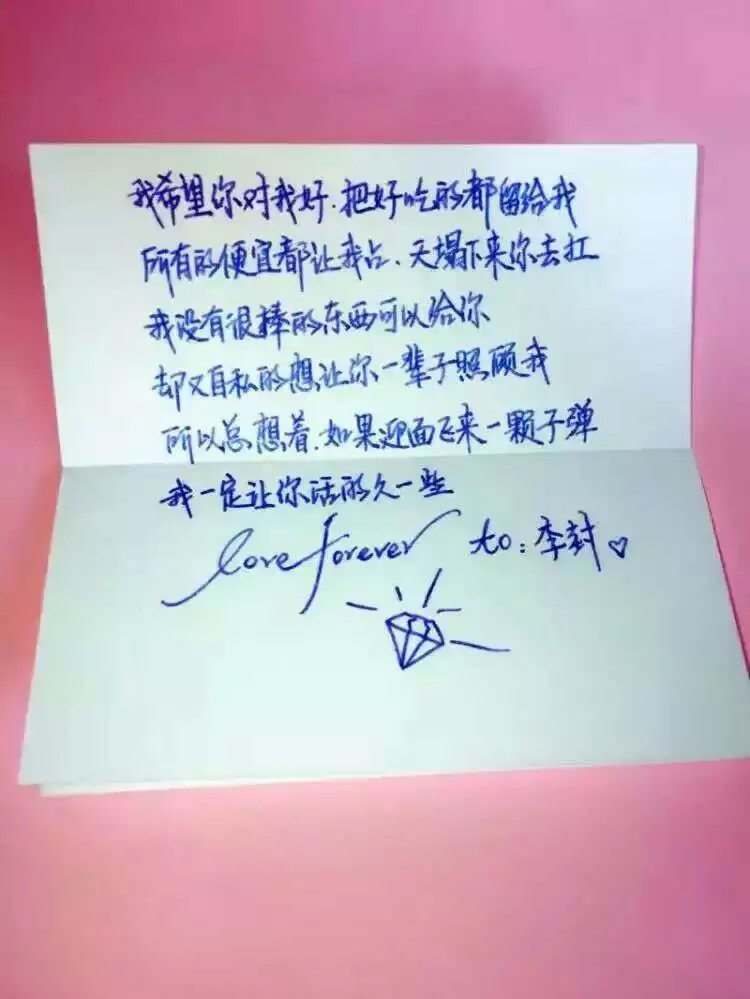 我希望你对我好.把好吃的都留给我
所有的便宜都让我占、天塌下来你去扛
我没有很棒的东西可以给你
却又自私的想让你一辈子照顾我
所以总想着.如果迎面飞来一颗子弹
我一定让你活的久一些
love forever to:李封♡